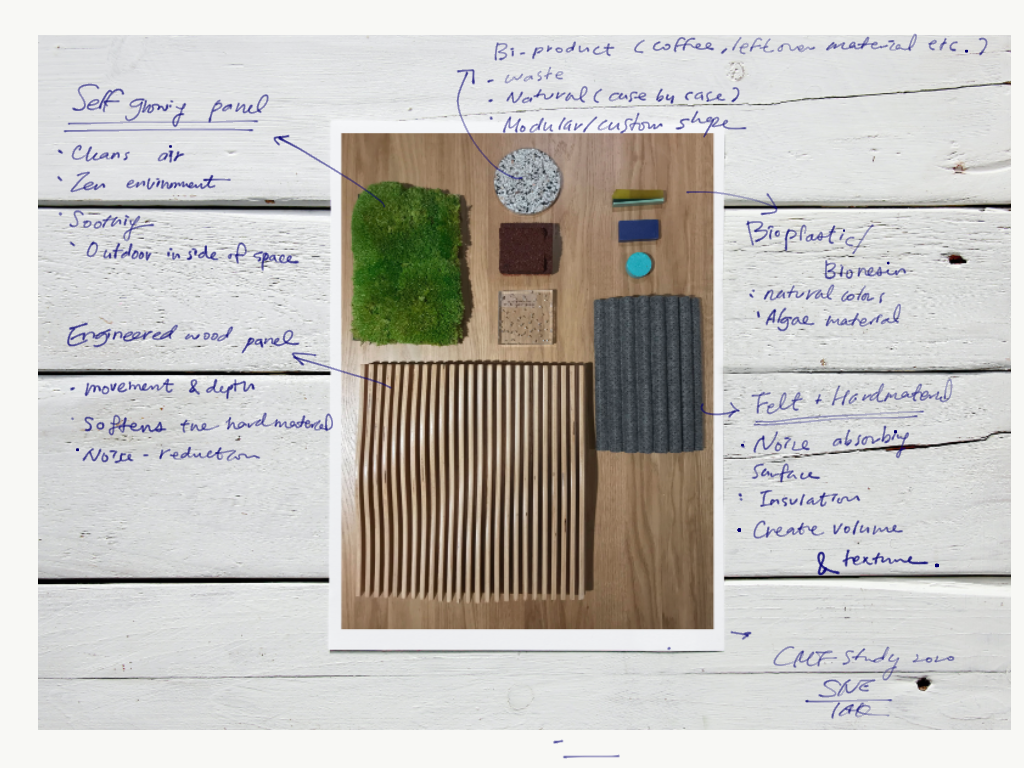 Bi-product (coffee, leftover material etc.)
- waste
• Natural (case by case)
• Modular/custom shape
Self growing panel
• Cleans air
• Zen environment
• Soothing
• Outdoor inside of space
Engineered wood panel
• movement & depth
• Softens the hard material
• Noise-reduction
Bioplastic/
Bioresin
• natural colors
• Algae material
Felt + Hardmaterial
• Noise absorbing
surface
• Insulation
• Create volume
& texture.
CMF Study 2020